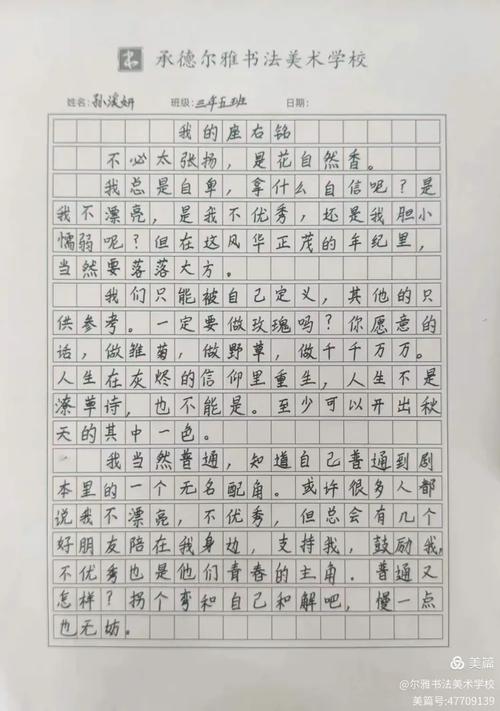 承德尔雅书法美术学校
姓名: 孙溪妍 班级: 三年五班 日期:
我的座右铭
不必太张扬，是花自然香。
我总是自卑，拿什么自信呢？是
我不漂亮，是我不优秀，还是我胆小
懦弱呢？但在这风华正茂的年纪里，
当然要落落大方。
我们只能被自己定义，其他的只
供参考。一定要做玫瑰吗？你愿意的
话，做雏菊，做野草，做千千万万。
人生在灰烬的信仰里重生，人生不是
潦草诗，也不能是。至少可以开出秋
天的其中一色。
我当然普通，知道自己普通到剧
本里的一个无名配角。或许很多人都
说我不漂亮，不优秀，但总会有几个
好朋友陪在我身边，支持我，鼓励我，
不优秀也是他们青春的主角。普通又
怎样？拐个弯和自己和解吧，慢一点
也无妨。
美篇
@尔雅书法美术学校
美篇号:47709139